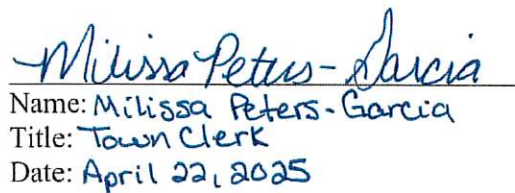 Milissa Peters-Garcia
Name: Milissa Peters-Garcia
Title: Town Clerk
Date: April 22, 2025